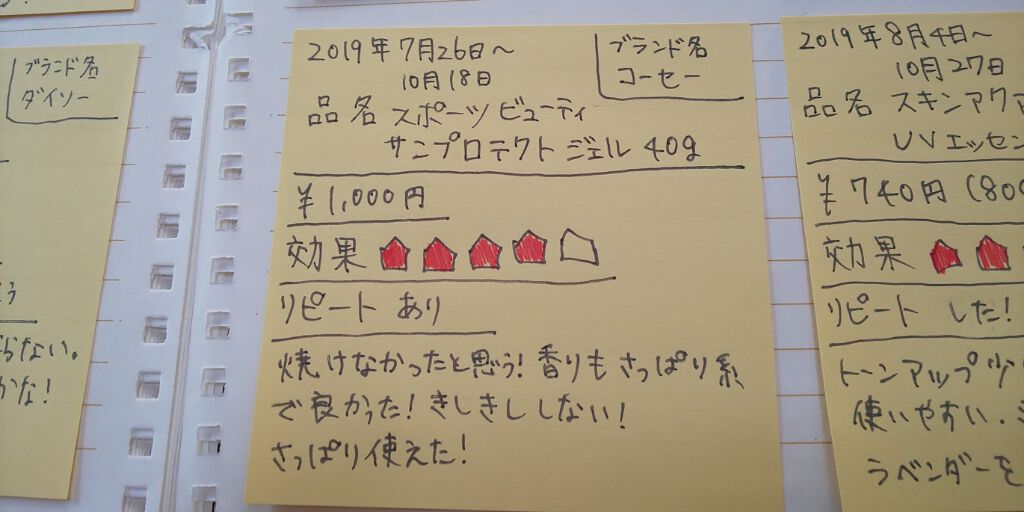 ブランド名
ダイソー
2019年7月26日〜
10月18日
ブランド名
コーセー
品名 スポーツビューティ
サンプロテクトジェル 40g
¥1,000円
効果
リピート あり
焼けなかったと思う!香りもさっぱり系
で良かった!きしきししない!
さっぱり使えた!
2019年8月4日〜
10月27日
品名 スキンアクア
UVエッセン
¥740円(800
効果
リピート した!
トーンアップ少
使いやすい.
ラベンダーを
らない。
かな!